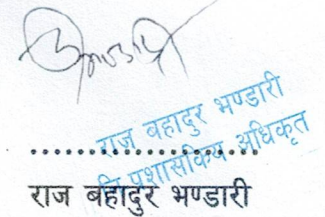 राज बहादुर भण्डारी
नि प्रशासकिय अधिकृत
राज बहादुर भण्डारी